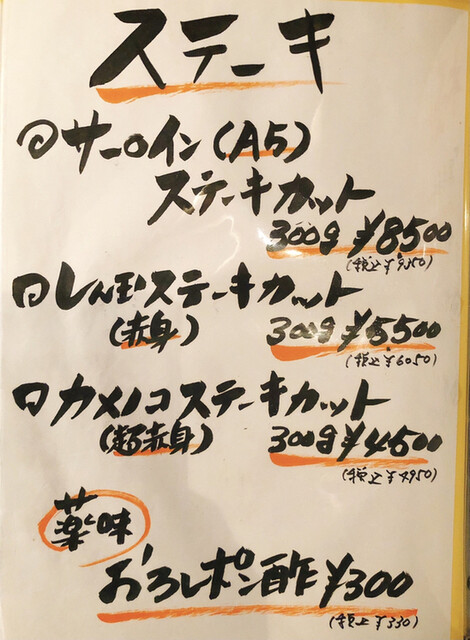 ステーキ
サーロイン(A5)
ステーキカット
300g ¥8500
(税込¥9350)
しん玉ステーキカット
(赤身) 300g ¥5500
(税込¥6050)
カメノコステーキカット
(超赤身) 300g ¥4500
(税込¥4950)
薬味
おろしポン酢 ¥300
(税込¥330)